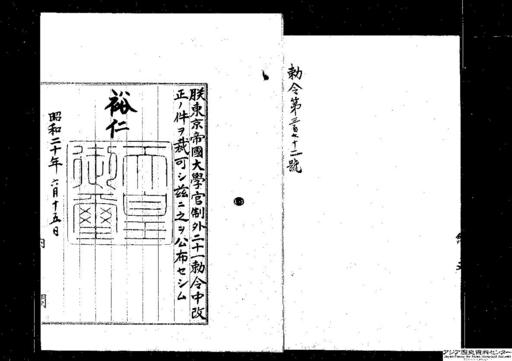 勅令第三百七十二號
朕東京帝國大學官制外二十一勅令中改
正ノ件ヲ裁可シ茲ニ之ヲ公布セシム
裕仁
天皇御璽
昭和二十年六月十五日
アジア歴史資料センター